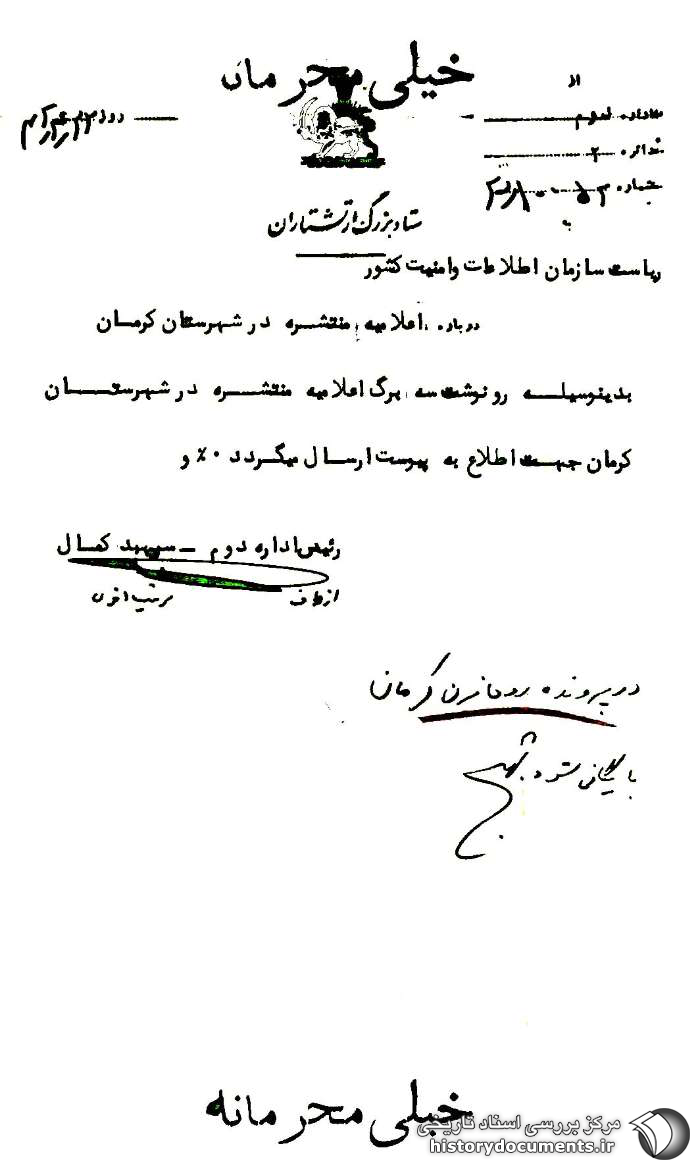 خیلی محرمانه
از
اداره دوم
دائره ۲
شماره
ستاد بزرگ ارتشتاران
ریاست سازمان اطلاعات و امنیت کشور
درباره اعلامیه منتشره در شهرستان کرمان
بدینوسیله رونوشت سه برگ اعلامیه منتشره در شهرستان
کرمان جهت اطلاع به پیوست ارسال میگردد ٠٪ و
رئیس اداره دوم – سپهبد کمال
از طرف
در پرونده روحانیون کرمان
بایگانی شود
خیلی محرمانه
مرکز بررسی اسناد تاریخی
historydocuments.ir